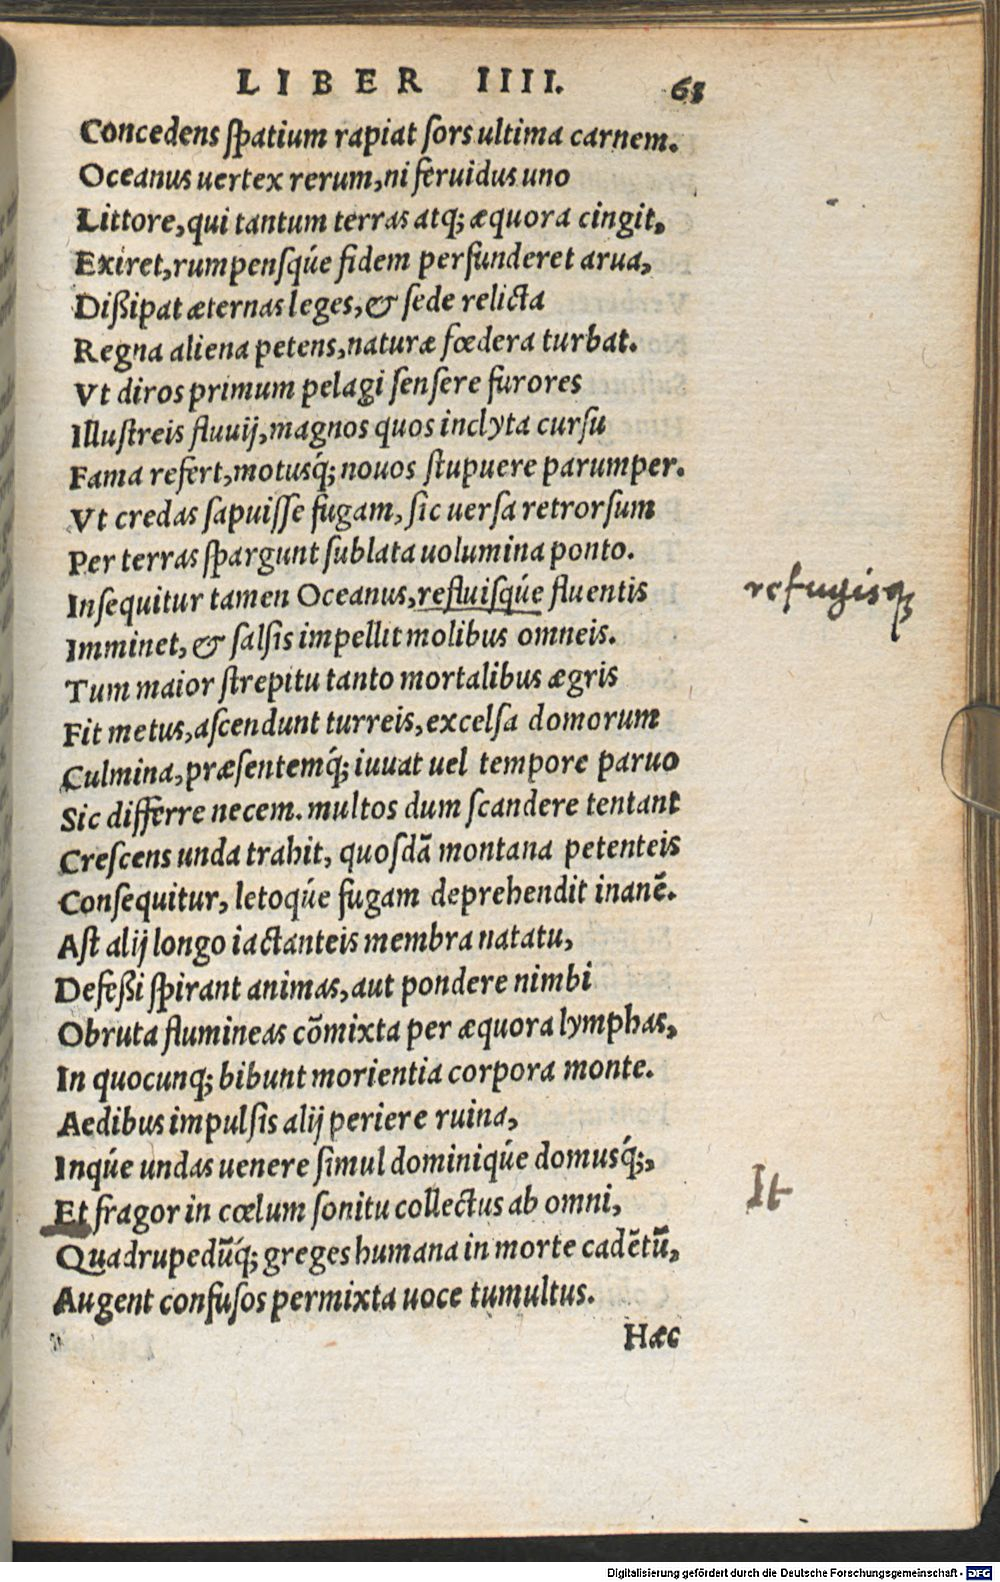 LIBER IIII. 63
Concedens spatium rapiat sors ultima carnem.
Oceanus uertex rerum, ni feruidus uno
Littore, qui tantum terras atq; æquora cingit,
Exiret, rumpensq́ue fidem perfunderet arua,
Dißipat æternas leges, & sede relicta
Regna aliena petens, naturæ fœdera turbat.
Vt diros primum pelagi sensere furores
Illustreis fluuij, magnos quos inclyta cursu
Fama refert, motusq́; nouos stupuere parumper.
Vt credas sapuisse fugam, sic uersa retrorsum
Per terras spargunt sublata uolumina ponto.
Insequitur tamen Oceanus, refluisq́ue fluentis refugisq;
Imminet, & salsis impellit molibus omneis.
Tum maior strepitu tanto mortalibus ægris
Fit metus, ascendunt turreis, excelsa domorum
Culmina, præsentemq́; iuuat uel tempore paruo
Sic differre necem. multos dum scandere tentant
Crescens unda trahit, quosdā montana petenteis
Consequitur, letoq́ue fugam deprehendit inanē.
Ast alij longo iactanteis membra natatu,
Defeßi spirant animas, aut pondere nimbi
Obruta flumineas cōmixta per æquora lymphas,
In quocunq; bibunt morientia corpora monte.
Aedibus impulsis alij periere ruina,
Inq́ue undas uenere simul dominiq́ue domusq́;,
Et fragor in cœlum sonitu collectus ab omni, It
Quadrupedūq́; greges humana in morte cadētū,
Augent confusos permixta uoce tumultus.
Hæc
Digitalisierung gefördert durch die Deutsche Forschungsgemeinschaft - DFG